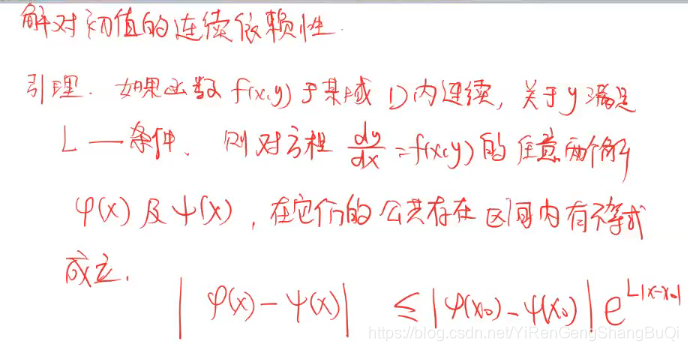 解对初值的连续依赖性.
引理. 如果函数 f(x,y) 于某域 D 内连续, 关于 y 满足
L — 条件. 则对方程 dy/dx = f(x,y) 的任意两个解
φ(x) 及 ψ(x), 在它们的公共存在区间内有不等式
成立.
|φ(x) - ψ(x)| ≤ |φ(x₀) - ψ(x₀)| e^{L|x-x₀|}
https://blog.csdn.net/YiRenGengShangBuQi